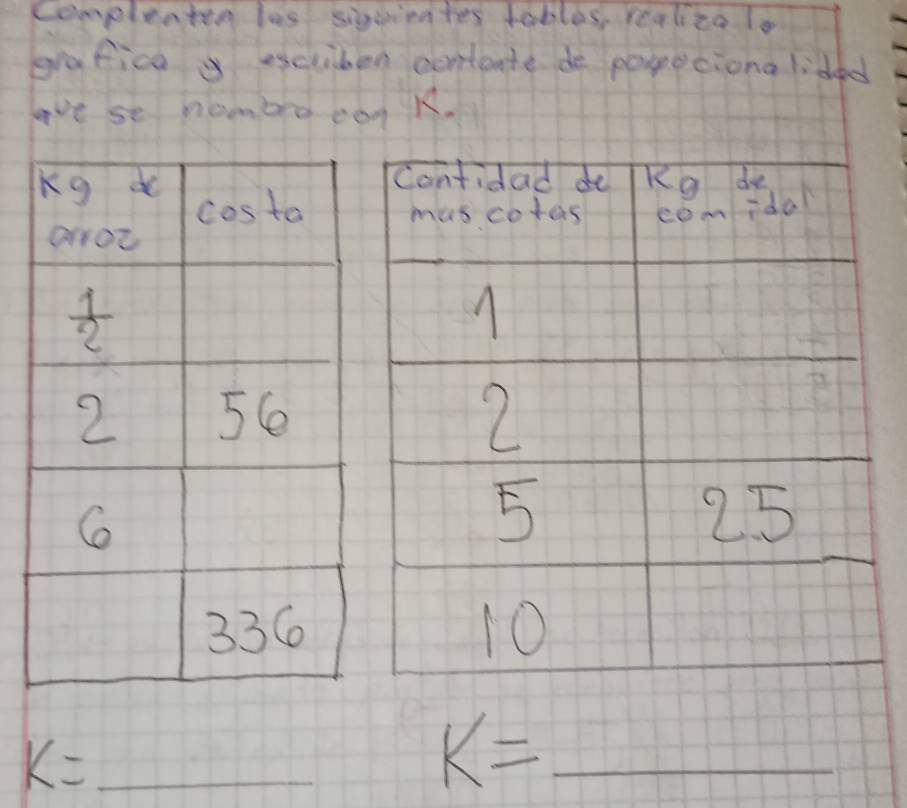 Complenten las siguientes tablas, realiza la
grafica y escriben contante de porpocionalidad
que se nombro con K.
Kg de arroz costo
1/2
2 56
6
336
K= ________
Cantidad de mascotas Kg de comida
1
2
5 2.5
10
K= ________